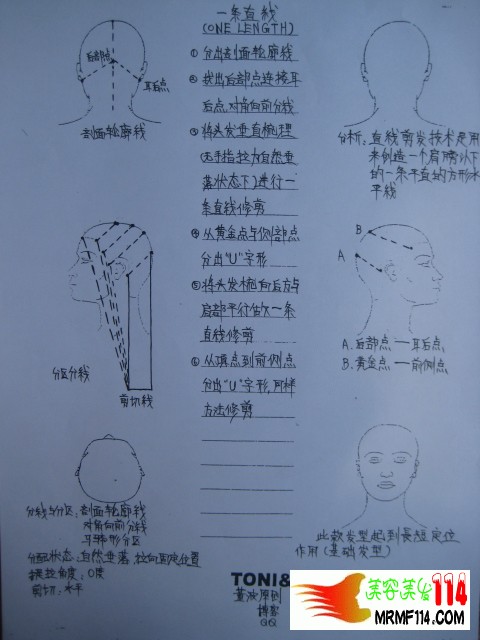 一条直线
(ONE LENGTH)
① 分出剖面轮廓线
② 找出后部点连接耳
后点,对角向前分线
③ 将头发垂直梳理
(无手指拉力自然垂
落状态下)进行一
条直线修剪
④ 从黄金点与侧部点
分出"U"字形
⑤ 将头发梳向后方与
肩部平行做一条
直线修剪
⑥ 从顶点到前侧点
分出"U"字形,同样
方法修剪
后部点
耳后点
剖面轮廓线
分析:直线剪发技术是用
来创造一个肩膀以下
的一条平直的方形水
平线
分区分线
剪切线
B
A
A.后部点一耳后点
B.黄金点一前侧点
分线与分区:剖面轮廓线
对角向前分线
分配状态:自然垂落,拉向固定位置
提拉角度:0度
剪切:水平
此款发型起到长短定位
作用(基础发型)
TONI&
博客
QQ
美容美发114
MRMF114.COM